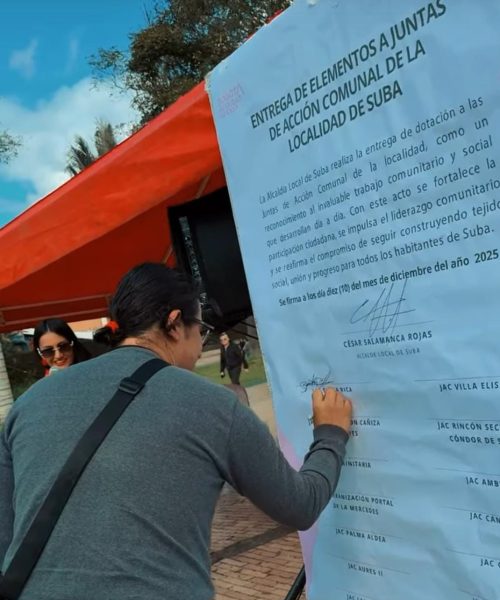 ENTREGA DE ELEMENTOS A JUNTAS
DE ACCIÓN COMUNAL DE LA
LOCALIDAD DE SUBA
La Alcaldía Local de Suba realiza la entrega de dotación a las
Juntas de Acción Comunal de la localidad, como un
reconocimiento al invaluable trabajo comunitario y social
que desarrollan día a día. Con este acto se fortalece la
participación ciudadana, se impulsa el liderazgo comunitario
y se reafirma el compromiso de seguir construyendo tejido
social, unión y progreso para todos los habitantes de Suba.
Se firma a los día diez (10) del mes de diciembre del año 2025
CÉSAR SALAMANCA ROJAS
ALCALDE LOCAL DE SUBA
JAC VILLA ELIS
CAÑIZA
JAC RINCÓN SEC
CÓNDOR DE S
JAC AMB
PORTAL
DE LA MERCEDES
JAC CÁN
JAC PALMA ALDEA
JAC
JAC AURES II
JAC